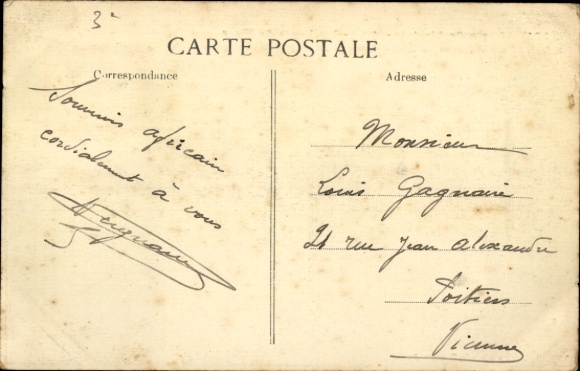 3
CARTE POSTALE
Correspondance
Souvenir africain
cordialement à vous
Adresse
Monsieur
Louis Gagnaire
21 rue Jean Alexandre
Poitiers
Vienne